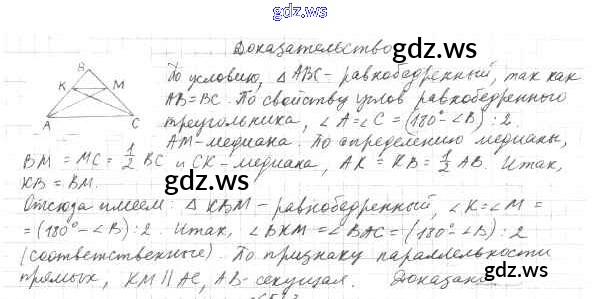 gdz.ws
Доказательство
gdz.ws
По условию, △ABC - равнобедренный, так как
AB=BC. По свойству углов равнобедренного
треугольника, ∠A=∠C = (180° - ∠B) : 2.
AM - медиана. По определению медианы,
BM = MC = 1/2 BC и CK - медиана, AK = KB = 1/2 AB. Итак,
KB = BM.
gdz.ws
Отсюда имеем: △KBM - равнобедренный, ∠K=∠M =
= (180° - ∠B) : 2. Итак, ∠BKM = ∠BAC = (180° - ∠B) : 2
(соответственные). По признаку параллельности
прямых, KM || AC, AB - секущая. Доказано.
gdz.ws
B
K
M
A
C